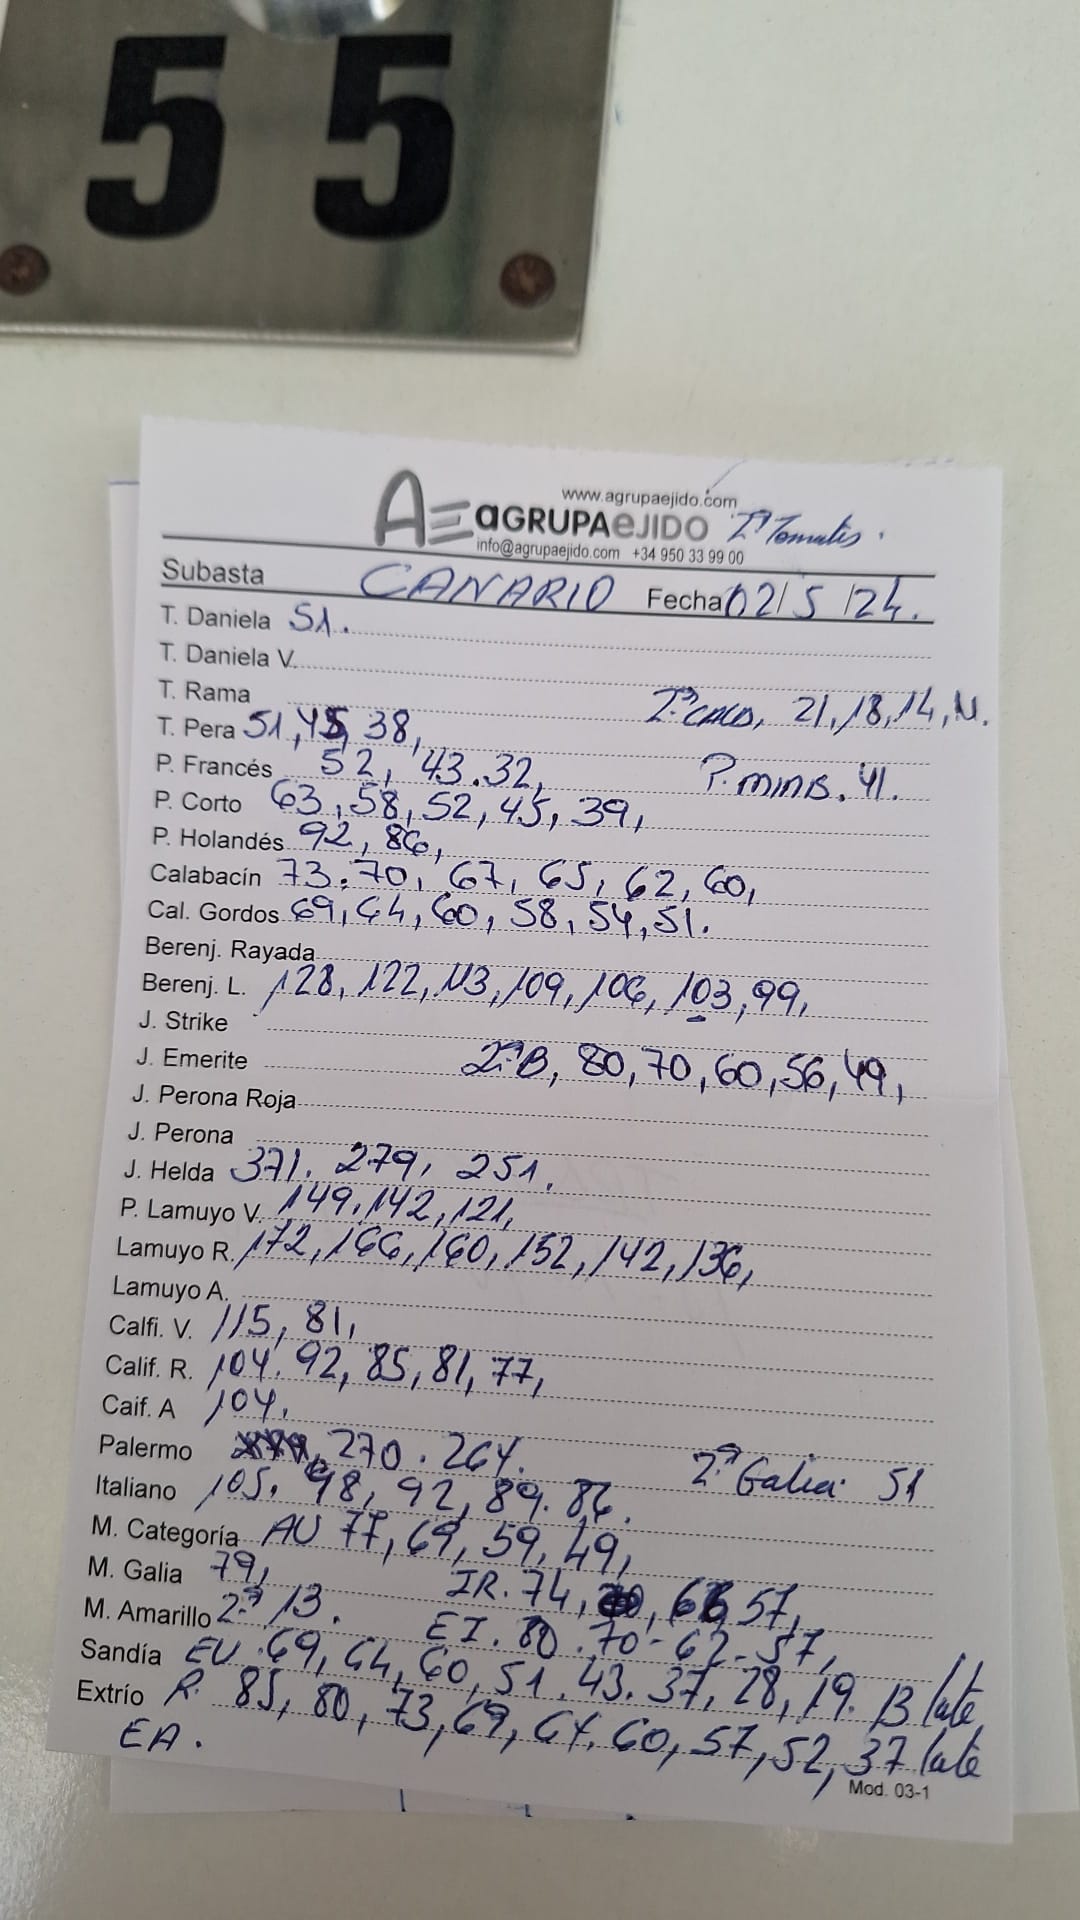 55
www.agrupaejido.com
AE aGRUPAeJIDO 2ª Tomates.
info@agrupaejido.com +34 950 33 99 00
Subasta CANARIO Fecha 02/5/24.
T. Daniela 51.
T. Daniela V.
T. Rama 2ª CALB, 21,18,14,11.
T. Pera 51,45,38,
P. Francés 52, 43.32, P. MINIS. 41.
P. Corto 63,58,52,45,39,
P. Holandés 92,86,
Calabacín 73.70, 67, 65, 62, 60,
Cal. Gordos 69,64,60,58,54,51.
Berenj. Rayada
Berenj. L. 128,122,113,109,106,103,99,
J. Strike
J. Emerite 2ªB, 80,70,60,56,49,
J. Perona Roja
J. Perona
J. Helda 371. 279, 251.
P. Lamuyo V. 149.142,121,
Lamuyo R. 172,166,160,152,142,136,
Lamuyo A.
Calfi. V. 115, 81,
Calif. R. 104. 92, 85, 81, 77,
Caif. A 104.
Palermo 270. 264. 2ª Galia. 51
Italiano 105. 98, 92, 89. 86.
M. Categoría AU 77,69,59,49,
M. Galia 79, IR. 74, 57,
M. Amarillo 2ª 13. EI. 80.70-62-57,
Sandía EU.69,64,60,51.43.37,28,19.13 late
Extrío R. 85, 80, 73, 69, 64. 60, 57, 52, 37 late
EA.
Mod. 03-1